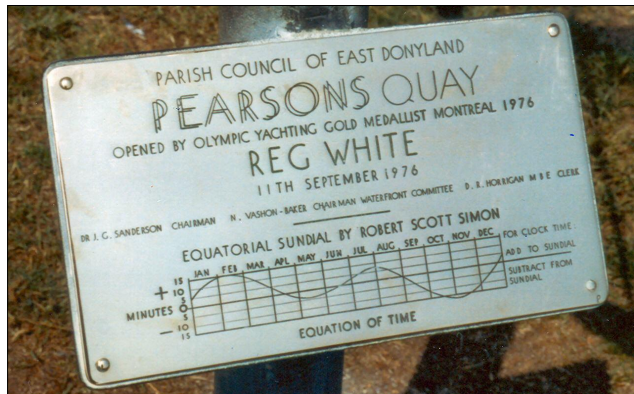 PARISH COUNCIL OF EAST DONYLAND
PEARSONS QUAY
OPENED BY OLYMPIC YACHTING GOLD MEDALLIST MONTREAL 1976
REG WHITE
11TH SEPTEMBER 1976
DR J. G. SANDERSON CHAIRMAN N. VASHON-BAKER CHAIRMAN WATERFRONT COMMITTEE D. R. HORRIGAN M B E CLERK
EQUATORIAL SUNDIAL BY ROBERT SCOTT SIMON
JAN FEB MAR APL MAY JUN JUL AUG SEP OCT NOV DEC
FOR CLOCK TIME:
ADD TO SUNDIAL
SUBTRACT FROM
SUNDIAL
+
MINUTES
−
15
10
5
0
5
10
15
EQUATION OF TIME